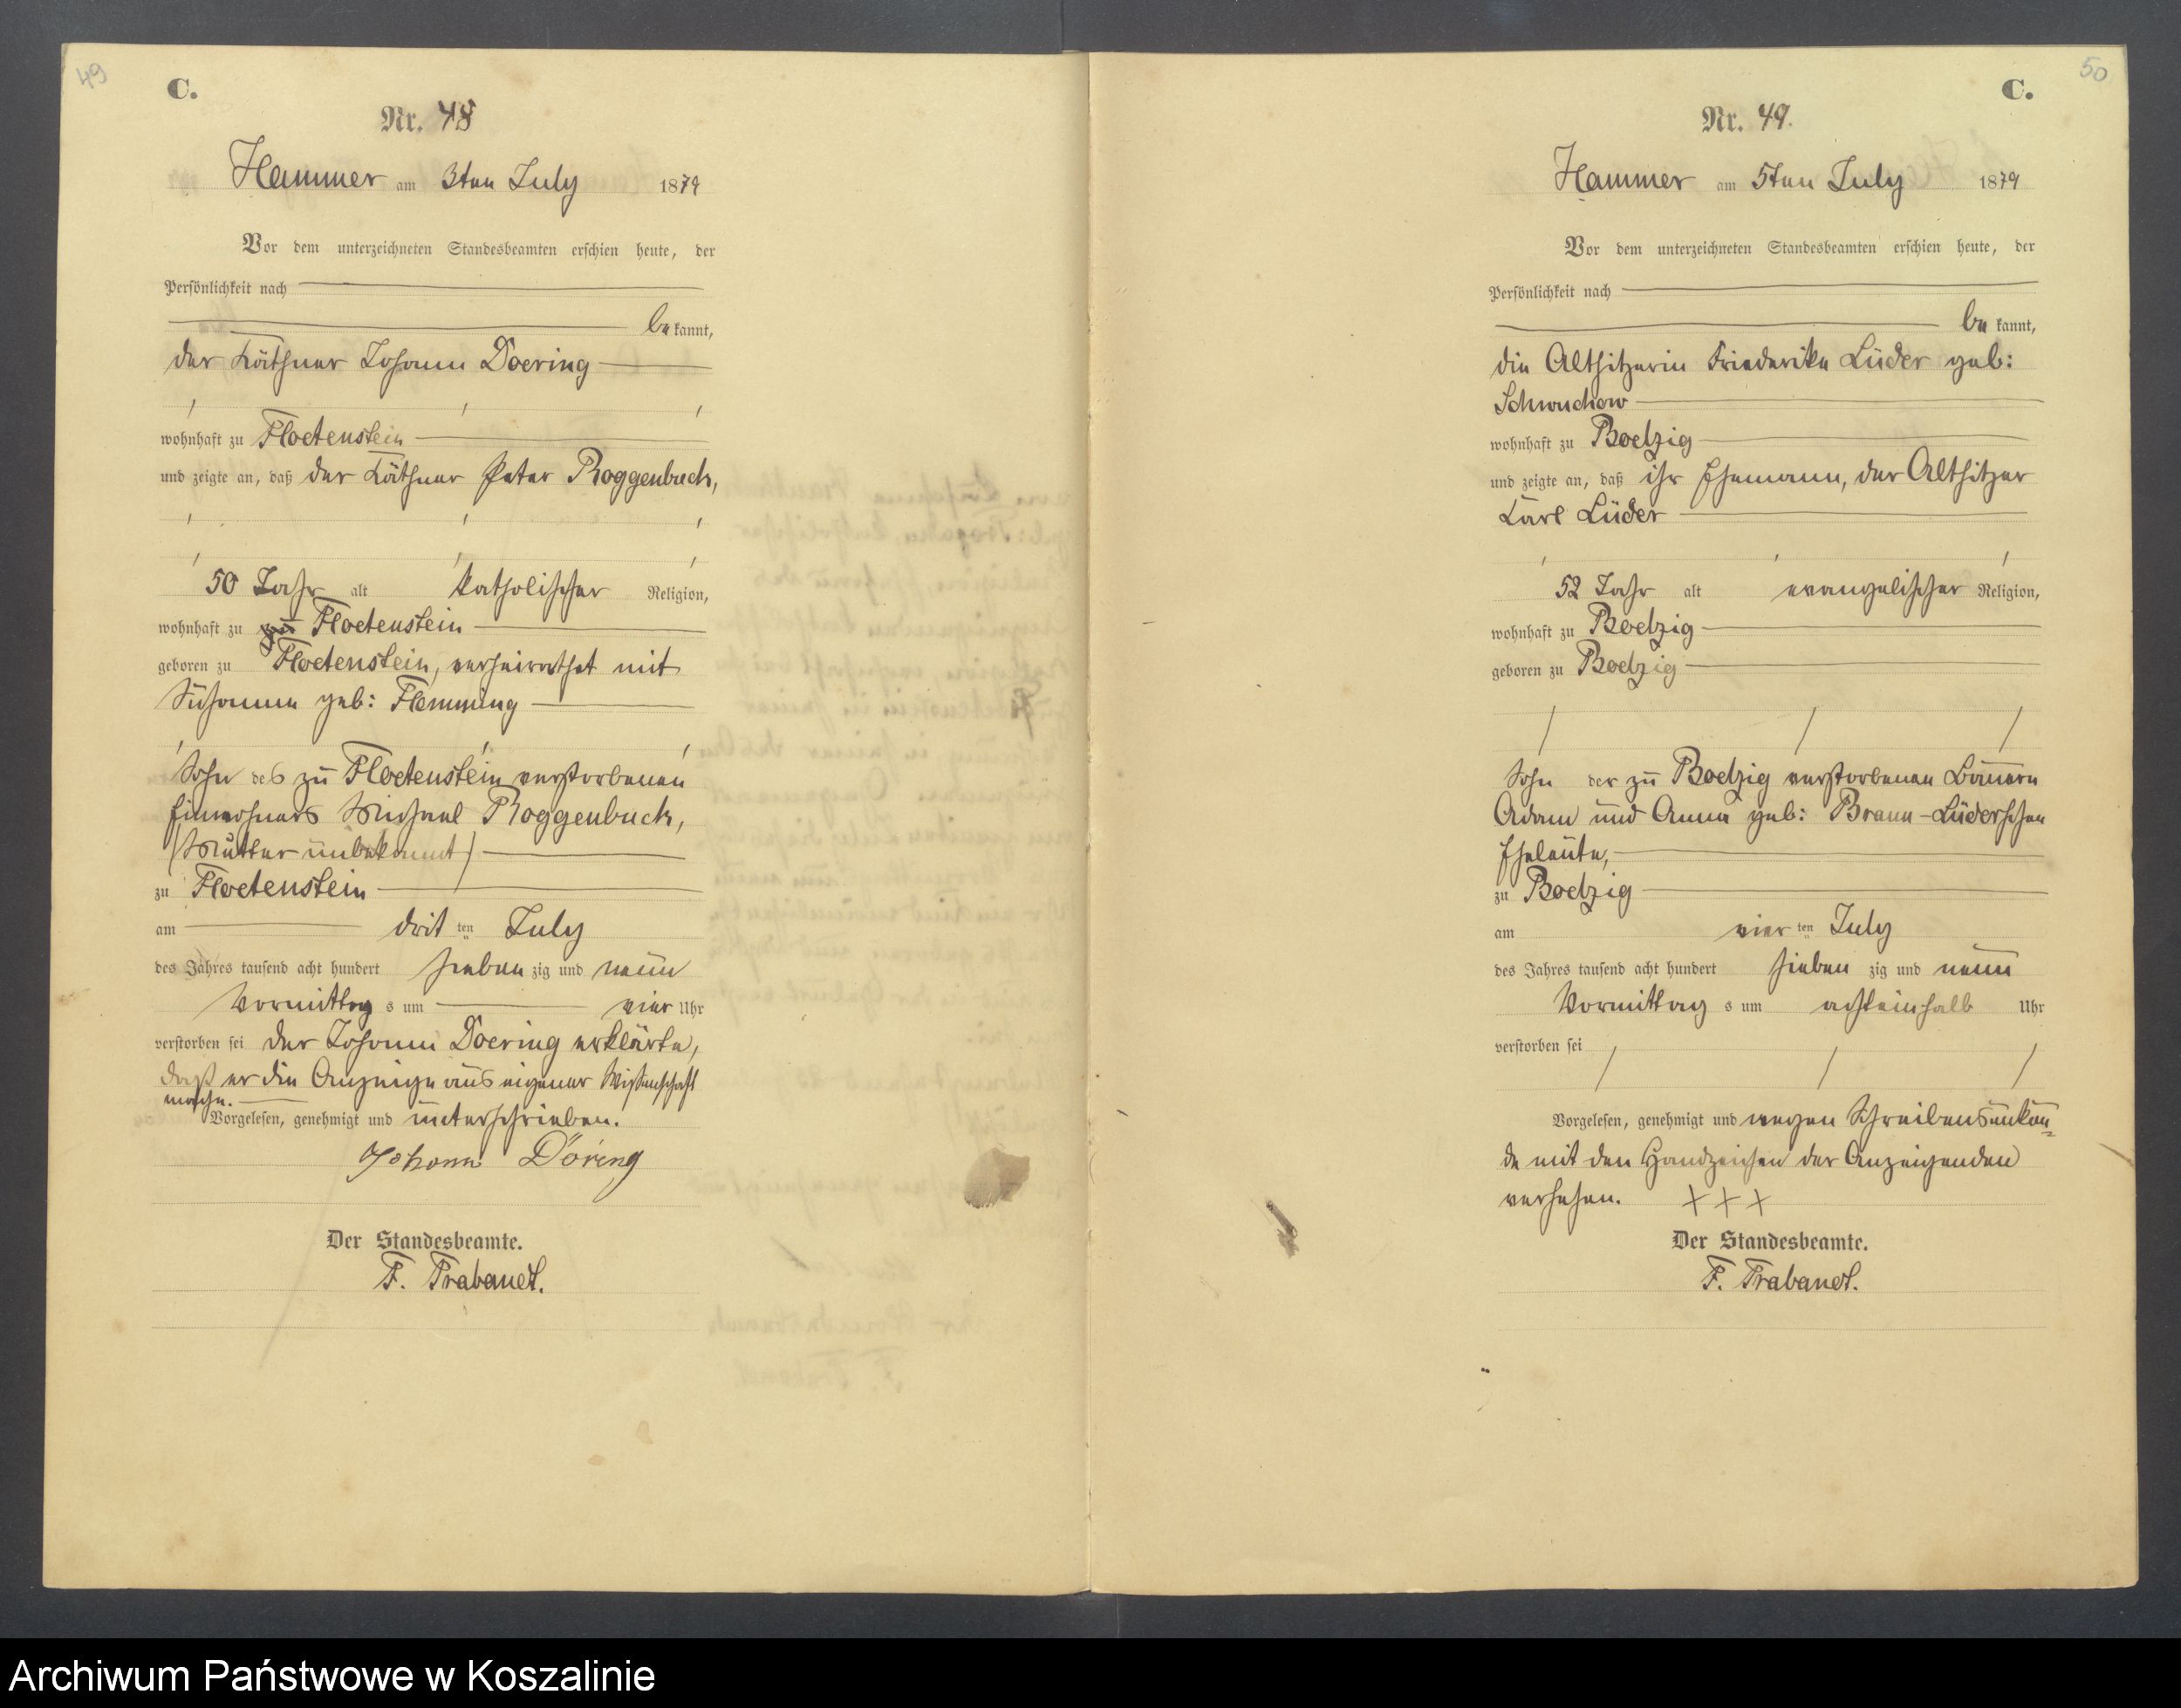 49
C.
Nr. 48
Hammer am 3ten July 1879
Vor dem unterzeichneten Standesbeamten erschien heute, der
Persönlichkeit nach
be kannt,
der Käthner Johann Doering
wohnhaft zu Floetenstein
und zeigte an, daß der Käthner Peter Roggenbuck,
50 Jahr alt katholischer Religion,
wohnhaft zu zu Floetenstein
geboren zu Floetenstein, verheirathet mit
Susanna geb: Flemming
Sohn des zu Floetenstein verstorbenen
Einwohners Michael Roggenbuck,
(Mutter unbekannt)
zu Floetenstein
am drit ten July
des Jahres tausend acht hundert sieben zig und neun
Vormittag s um vier Uhr
verstorben sei der Johann Doering erklärte,
daß er die Anzeige aus eigener Wissenschaft
mache.
Vorgelesen, genehmigt und unterschrieben.
Johann Döring
Der Standesbeamte.
F. Trabandt.
50
C.
Nr. 49.
Hammer am 5ten July 1879
Vor dem unterzeichneten Standesbeamten erschien heute, der
Persönlichkeit nach
be kannt,
die Altsitzerin Friederike Lüder geb:
Schwuchow
wohnhaft zu Boelzig
und zeigte an, daß ihr Ehemann, der Altsitzer
Karl Lüder
52 Jahr alt evangelischer Religion,
wohnhaft zu Boelzig
geboren zu Boelzig
Sohn der zu Boelzig verstorbenen Bauern
Adam und Anna geb: Braun-Lüderschen
Eheleute,
zu Boelzig
am vier ten July
des Jahres tausend acht hundert sieben zig und neun
Vormittag s um achteinhalb Uhr
verstorben sei
Vorgelesen, genehmigt und wegen Schreibensunkun=
de mit den Handzeichen der Anzeigenden
versehen. +++
Der Standesbeamte.
F. Trabandt.
Archiwum Państwowe w Koszalinie